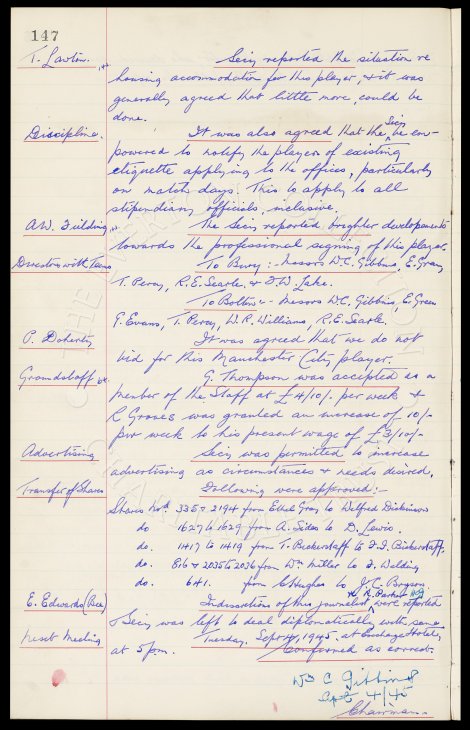 147
T. Lawton. Secy reported the situation re
housing accommodation for this player, & it was
generally agreed that little more, could be
done.
Discipline. It was also agreed that the Secy be em-
powered to notify the players of existing
etiquette applying to the offices, particularly
on match days. This to apply to all
stipendiary officials, inclusive.
A.W. Fielding The Secy reported brighter developments
towards the professional signing of this player.
Directors with Teams To Bury :- Messrs W.C. Gibbins, E. Green
T. Percy, R.E. Searle. & F.W. Lake.
To Bolton :- Messrs W.C. Gibbins, E. Green
G. Evans, T. Percy, W.R. Williams, R.E. Searle.
P. Doherty It was agreed that we do not
bid for this Manchester City player.
Groundstaff G. Thompson was accepted as a
member of the Staff at £4/10/- per week &
R Groves was granted an increase of 10/-
per week to his present wage of £3/10/-
Advertising Secy was permitted to increase
advertising as circumstances & needs desired.
Transfer of Shares Following were approved :-
Shares Nos. 335 & 2194 from Ethel Gray to Wilfred Dickinson
do 1627 to 1629 from A. Sides to D. Lewis.
do. 1417 to 1419 from T. Bickerstaff to J.J. Bickerstaff.
do. 816 & 2035 to 2036 from Wm Miller to J. Welding
do. 641. from C Hughes to J.C. Bryson
E. Edwards (Bee) Indiscretions of this journalist & R. Parker were reported
& Secy was left to deal diplomatically with same
Next Meeting Tuesday. Sept 4, 1945. at Exchange Hotel,
at 5 pm. Confirmed as correct.
Wm C Gibbins
Sept 4/45
Chairman.